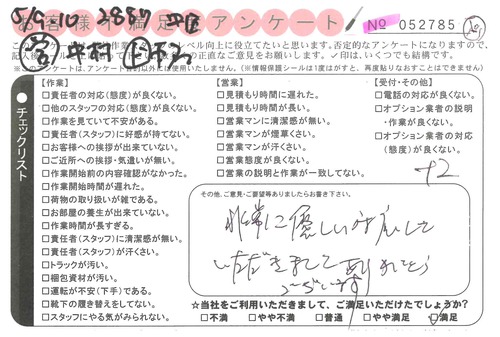 5/9-10 2887
お客様不満足アンケート
№ 052785
【作業】
□責任者の対応(態度)が良くない。
□他のスタッフの対応(態度)が良くない。
□作業を見ていて不安がある。
□責任者(スタッフ)に好感が持てない。
□お客様への挨拶が出来ていない。
□ご近所への挨拶・気遣いが無い。
□作業開始前の内容確認がなかった。
□作業開始時間が遅れた。
□荷物の取り扱いが雑である。
□お部屋の養生が出来ていない。
□作業時間が長すぎる。
□責任者(スタッフ)に清潔感が無い。
□責任者(スタッフ)が汗くさい。
□トラックが汚い。
□梱包資材が汚い。
□運転が不安(下手)である。
□靴下の履き替えをしてない。
□スタッフにやる気がみられない。
【営業】
□見積もり時間に遅れた。
□見積もり時間が長い。
□営業マンに清潔感が無い。
□営業マンが煙草くさい。
□営業マンが汗くさい。
□営業態度が良くない。
□営業の説明と作業が一致してない。
【受付・その他】
□電話の対応が良くない。
□オプション業者の説明
・作業が良くない。
□オプション業者の対応
(態度)が良くない。
+2
その他、ご意見・ご要望等ありましたらお書き下さい。
非常に優しい対応して
いただきまして ありがとう
ございます
☆当社をご利用いただきまして、ご満足いただけたでしょうか?
□不満 □やや不満 □普通 □やや満足 □満足
チェックリスト